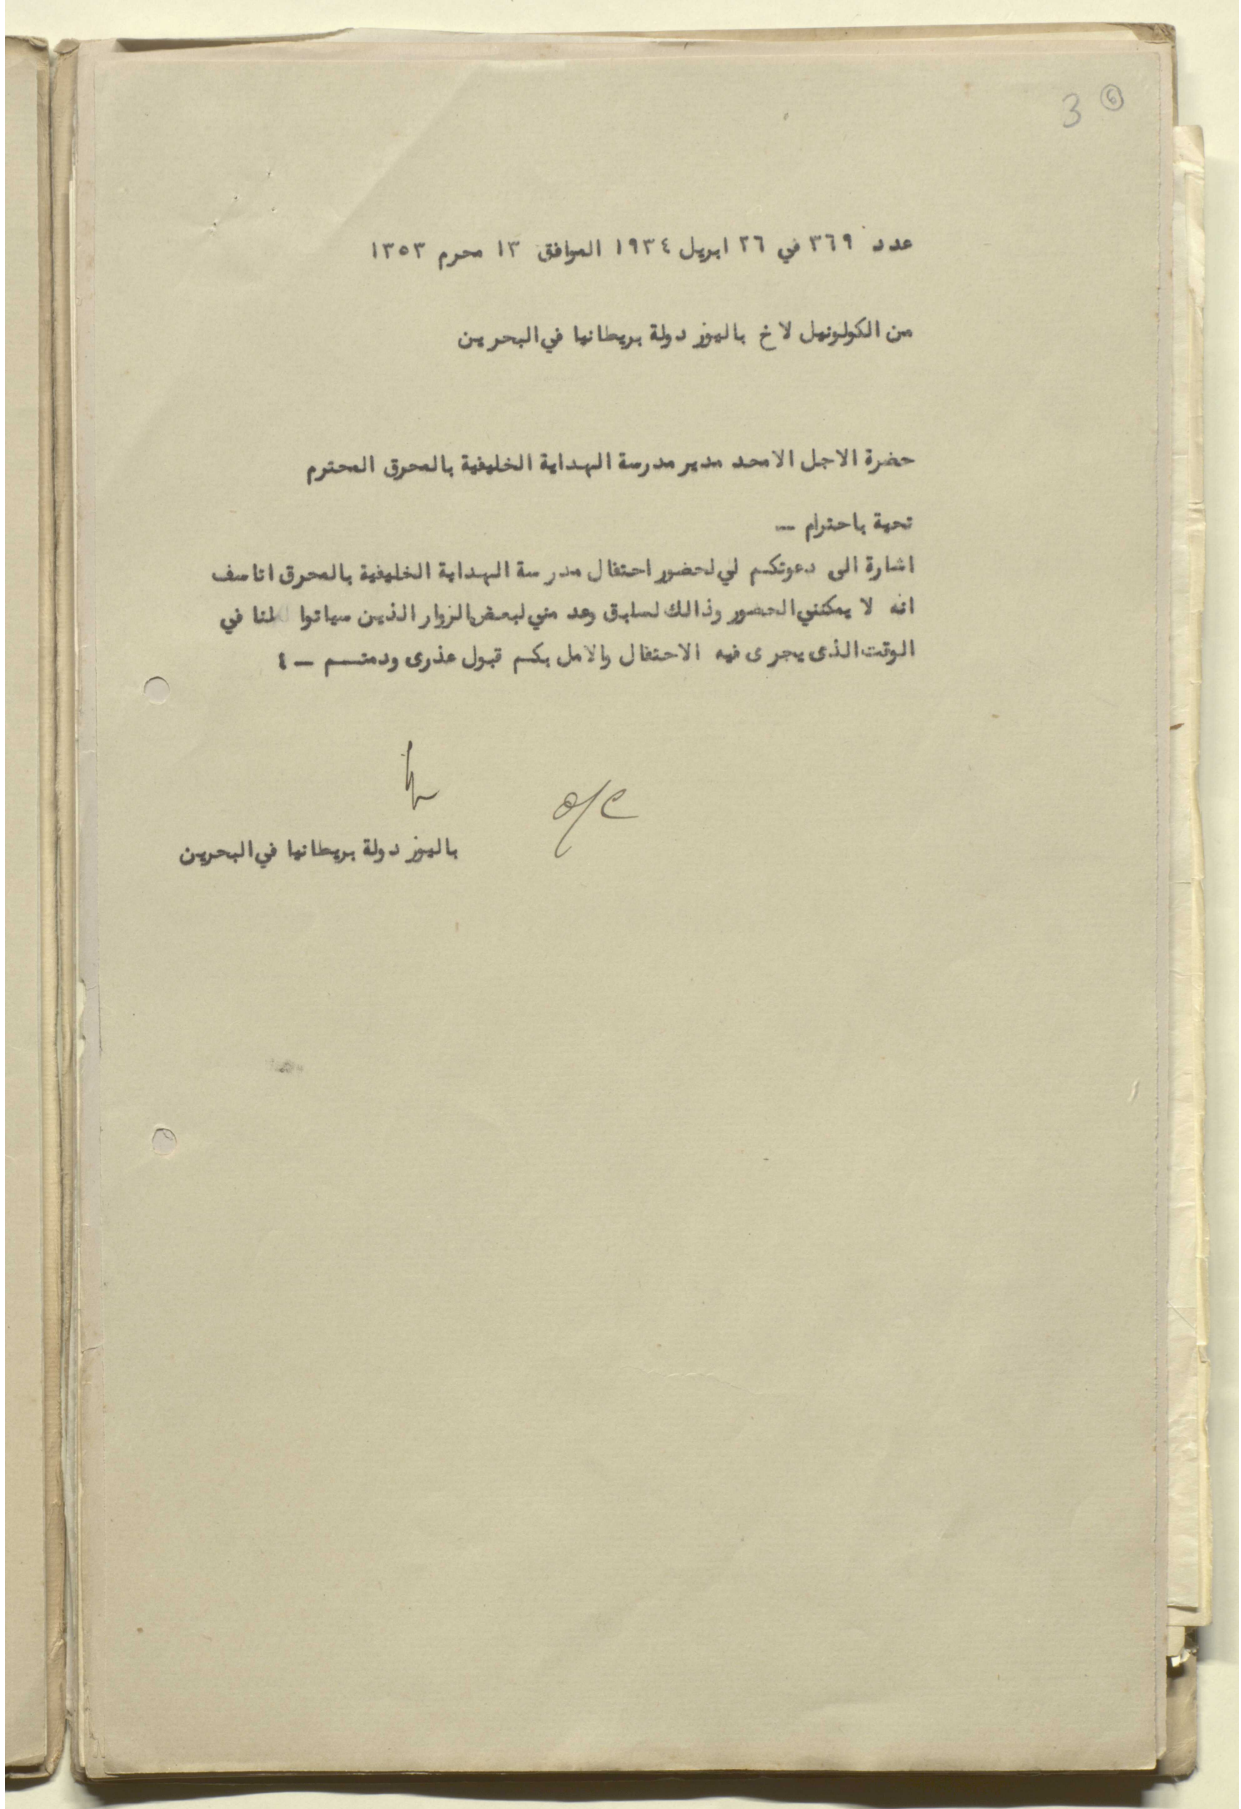 3 ⑥
عدد ٣٦٩ في ٢٦ ابريل ١٩٣٤ الموافق ١٣ محرم ١٣٥٣
من الكولونيل لاخ باليوز دولة بريطانيا في البحرين
حضرة الاجل الامجد مدير مدرسة الهداية الخليفية بالمحرق المحترم
تحية باحترام —
اشارة الى دعوتكم لي لحضور احتفال مدرسة الهداية الخليفية بالمحرق اتاسف
انه لا يمكنني الحضور وذالك لسابق وعد مني لبعض الزوار الذين سياتوا لنا في
الوقت الذى يجرى فيه الاحتفال والامل بكم قبول عذرى ودمتم — ٤
o/c
باليوز دولة بريطانيا في البحرين